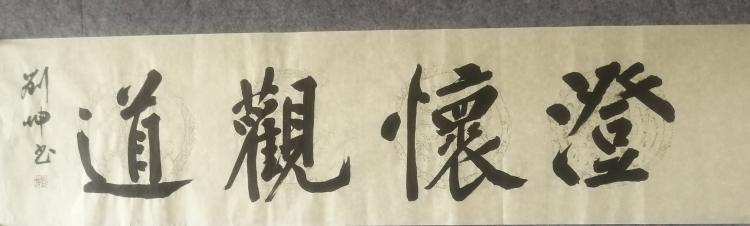 澄懷觀道
劉坤书